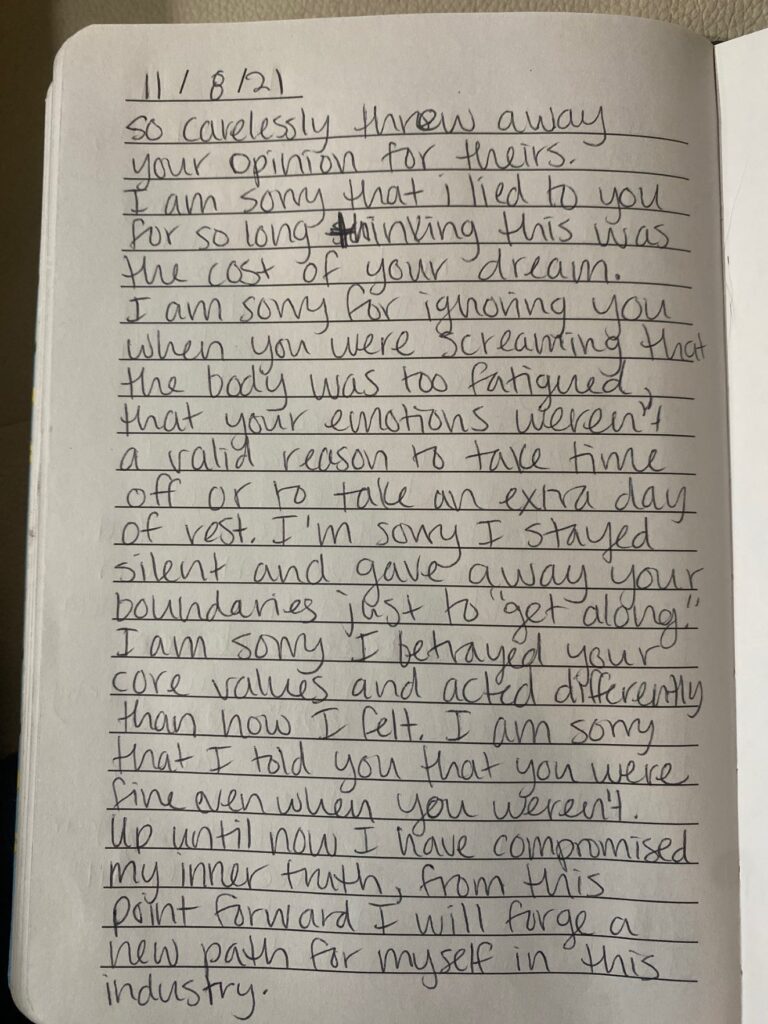 11/8/21
so carelessly threw away
your opinion for theirs.
I am sorry that i lied to you
for so long thinking this was
the cost of your dream.
I am sorry for ignoring you
when you were screaming that
the body was too fatigued,
that your emotions weren't
a valid reason to take time
off or to take an extra day
of rest. I'm sorry I stayed
silent and gave away your
boundaries just to "get along."
I am sorry I betrayed your
core values and acted differently
than how I felt. I am sorry
that I told you that you were
fine even when you weren't.
Up until now I have compromised
my inner truth, from this
point forward I will forge a
new path for myself in this
industry.